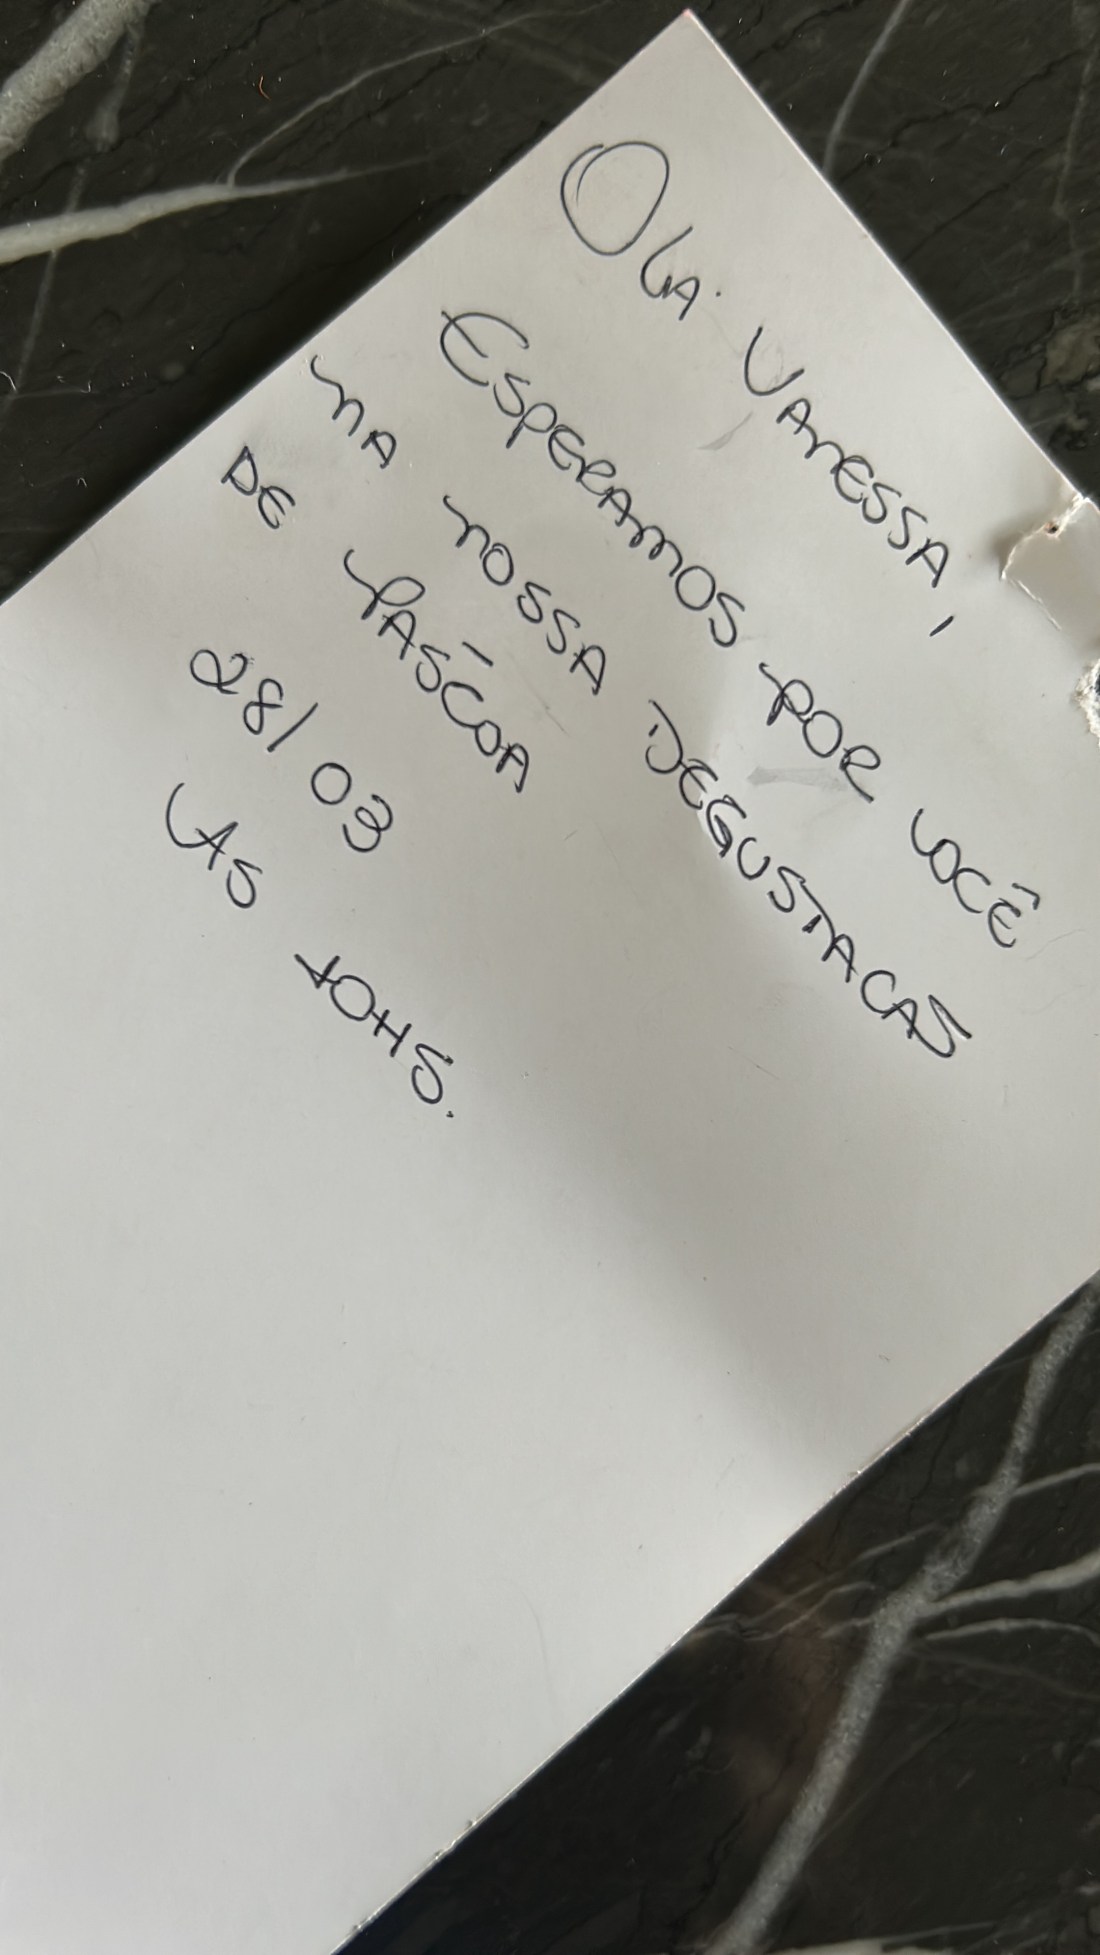 OLA VANESSA,
ESPERAMOS POR VOCÊ
NA NOSSA DEGUSTACAS
DE PASCOA
28/03
AS 10HS.